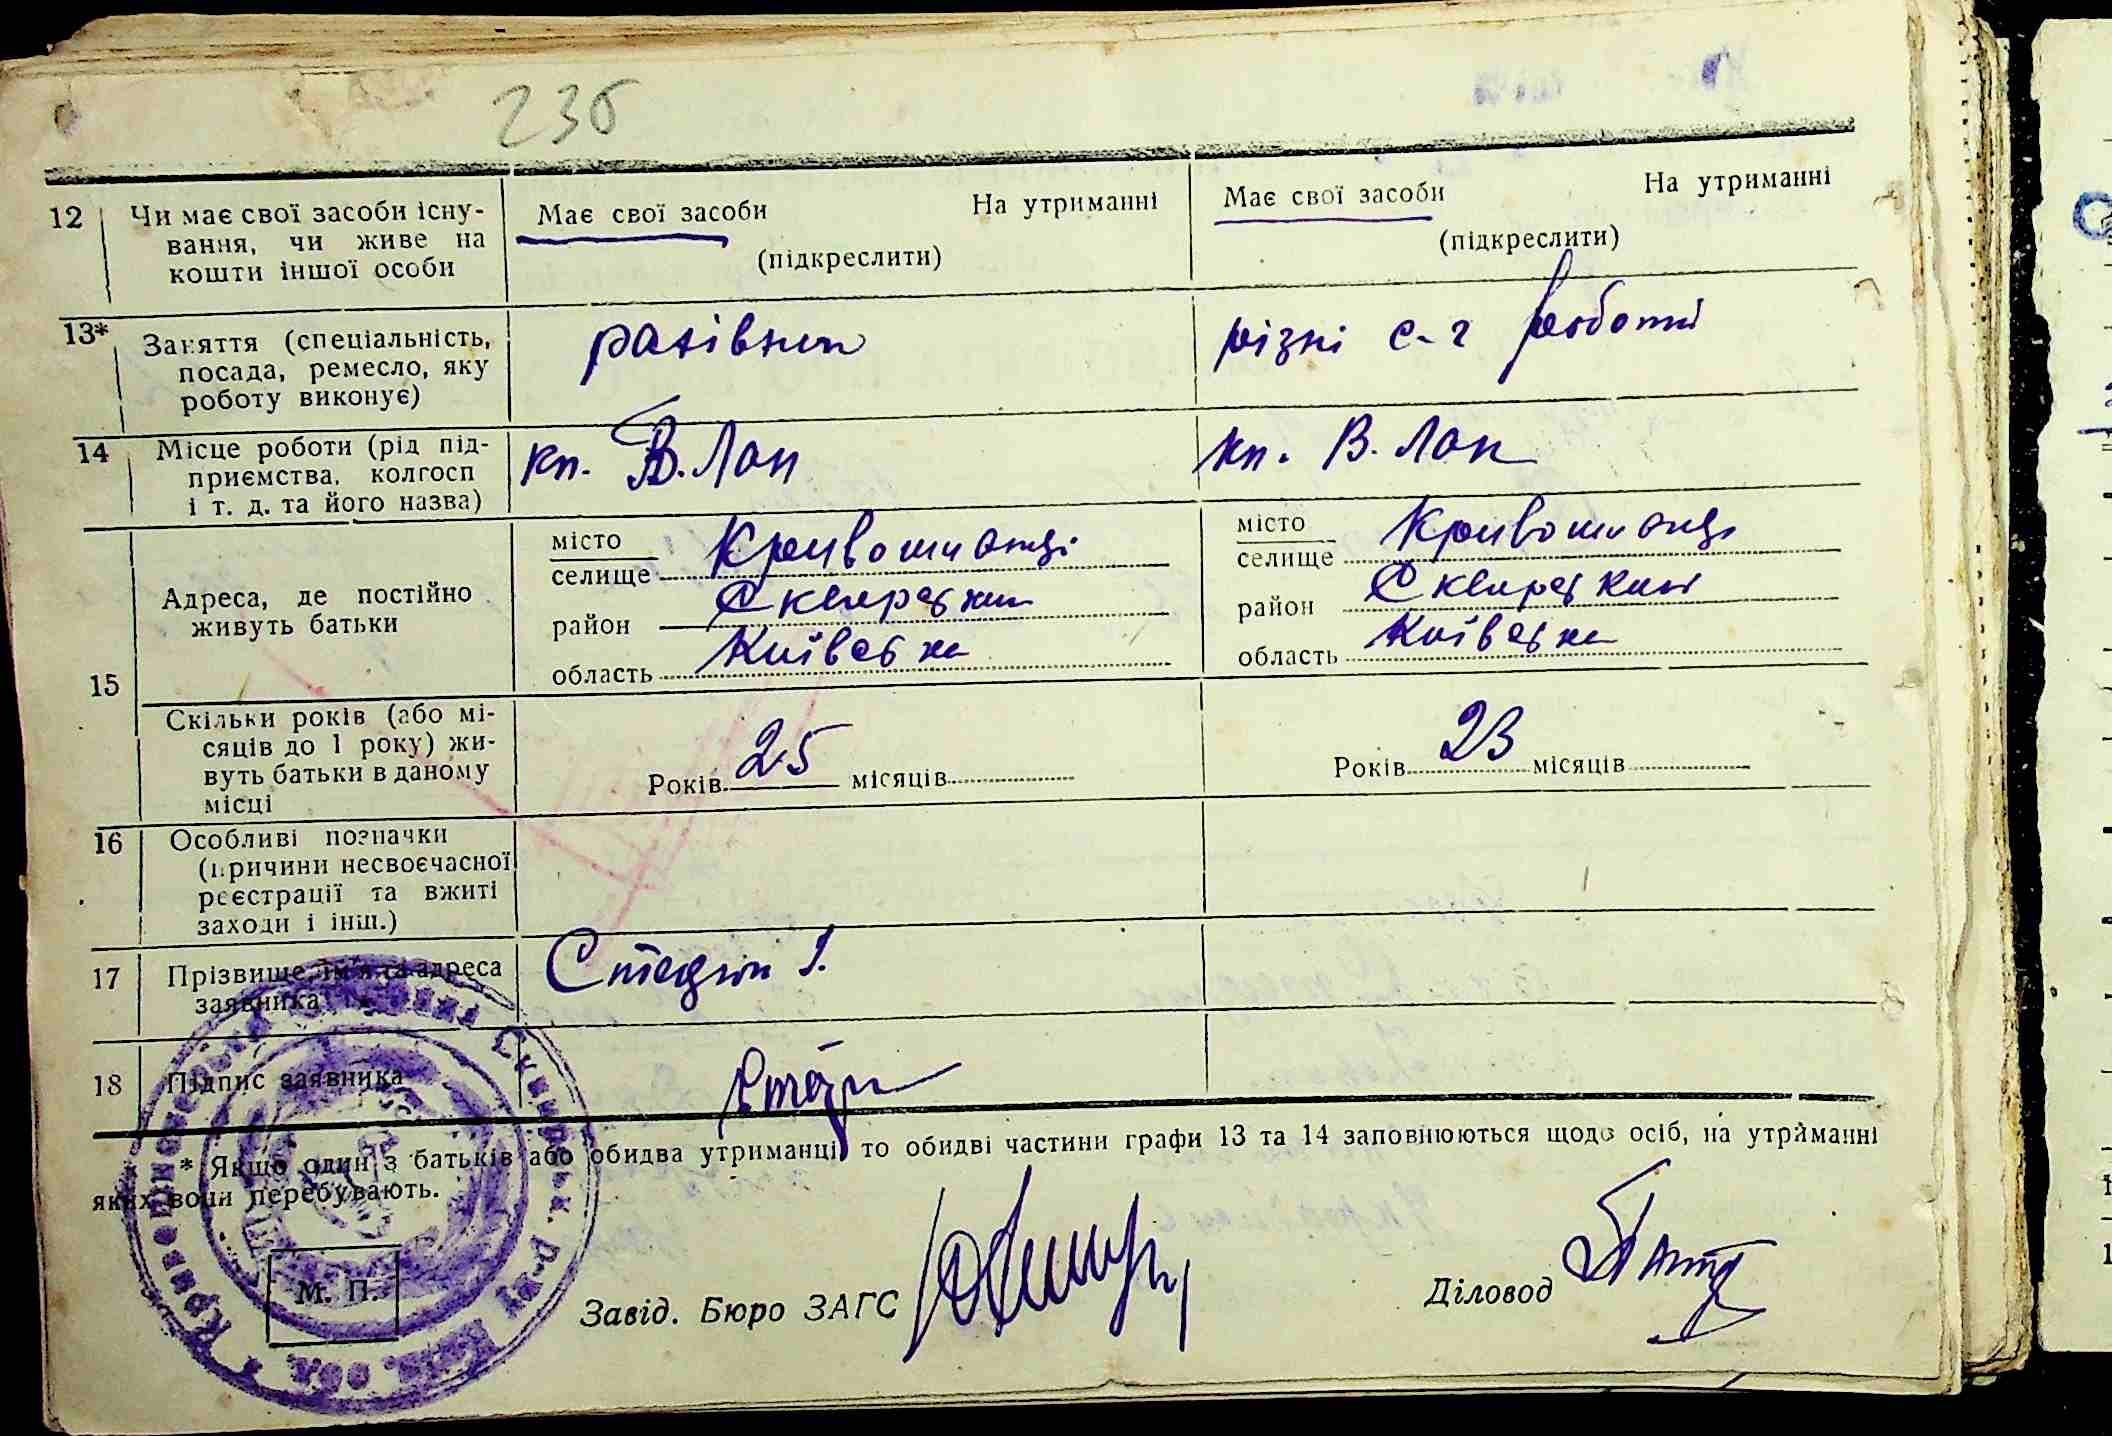 236
12 Чи має свої засоби існу-
вання, чи живе на
кошти іншої особи
Має свої засоби На утриманні
(підкреслити)
Має свої засоби На утриманні
(підкреслити)
13* Заняття (спеціальність,
посада, ремесло, яку
роботу виконує)
різні с-г роботи
14 Місце роботи (рід під-
приємства, колгосп
і т. д. та його назва)
кп. В. Лан
кп. В. Лан
15 Адреса, де постійно
живуть батьки
місто
селище Кривошиїнці
район Сквирський
область Київська
місто
селище Кривошиїнці
район Сквирський
область Київська
Скільки років (або мі-
сяців до 1 року) жи-
вуть батьки в даному
місці
Років 25 місяців
Років 23 місяців
16 Особливі позначки
(причини несвоєчасної
реєстрації та вжиті
заходи і інш.)
17 Прізвище, ім'я та адреса
заявника
18 Підпис заявника
* Якщо один з батьків або обидва утриманці, то обидві частини графи 13 та 14 заповнюються щодо осіб, на утриманні
яких вони перебувають.
М. П.
Завід. Бюро ЗАГС
Діловод